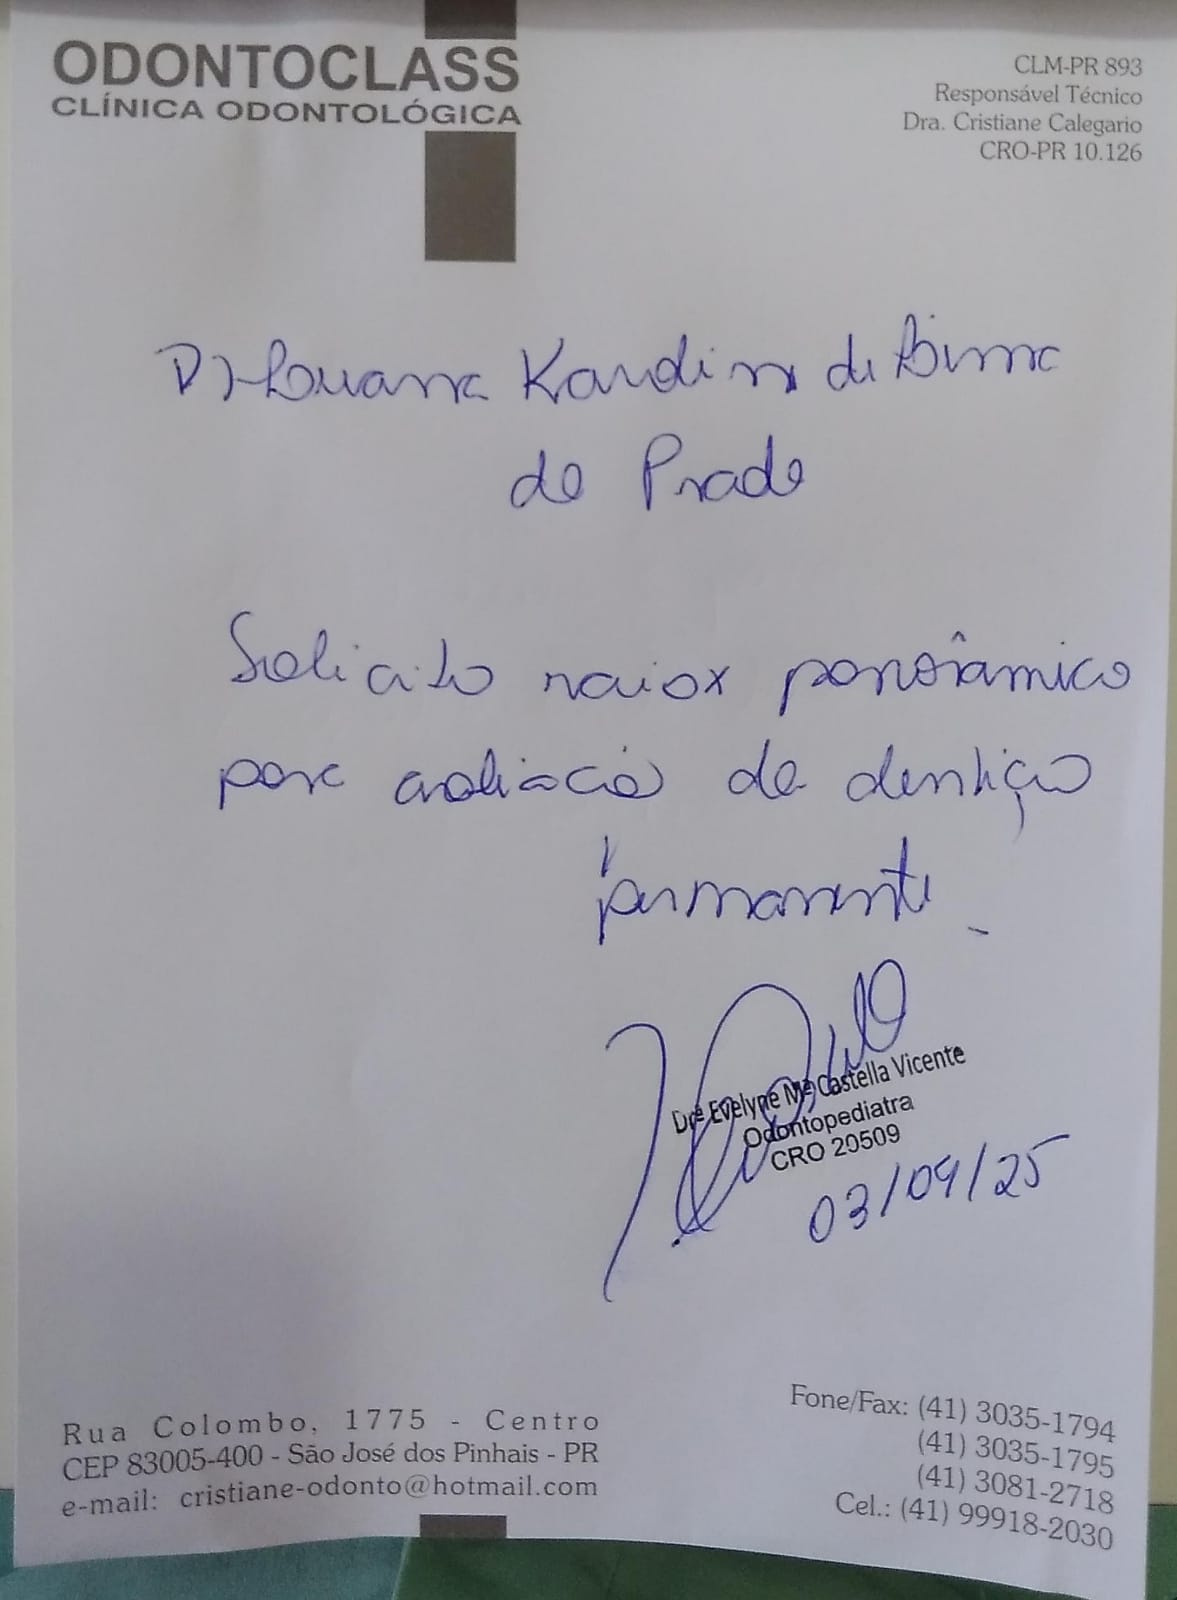 ODONTOCLASS
CLÍNICA ODONTOLÓGICA
CLM-PR 893
Responsável Técnico
Dra. Cristiane Calegario
CRO-PR 10.126
P/ Luana Kardin de Lima
do Prado
Solicito raiox panorâmico
para avaliação da dentição
permanente
Drª Evelyne Mª Castella Vicente
Odontopediatra
CRO 20509
03/09/25
Rua Colombo, 1775 - Centro
CEP 83005-400 - São José dos Pinhais - PR
e-mail: cristiane-odonto@hotmail.com
Fone/Fax: (41) 3035-1794
(41) 3035-1795
(41) 3081-2718
Cel.: (41) 99918-2030